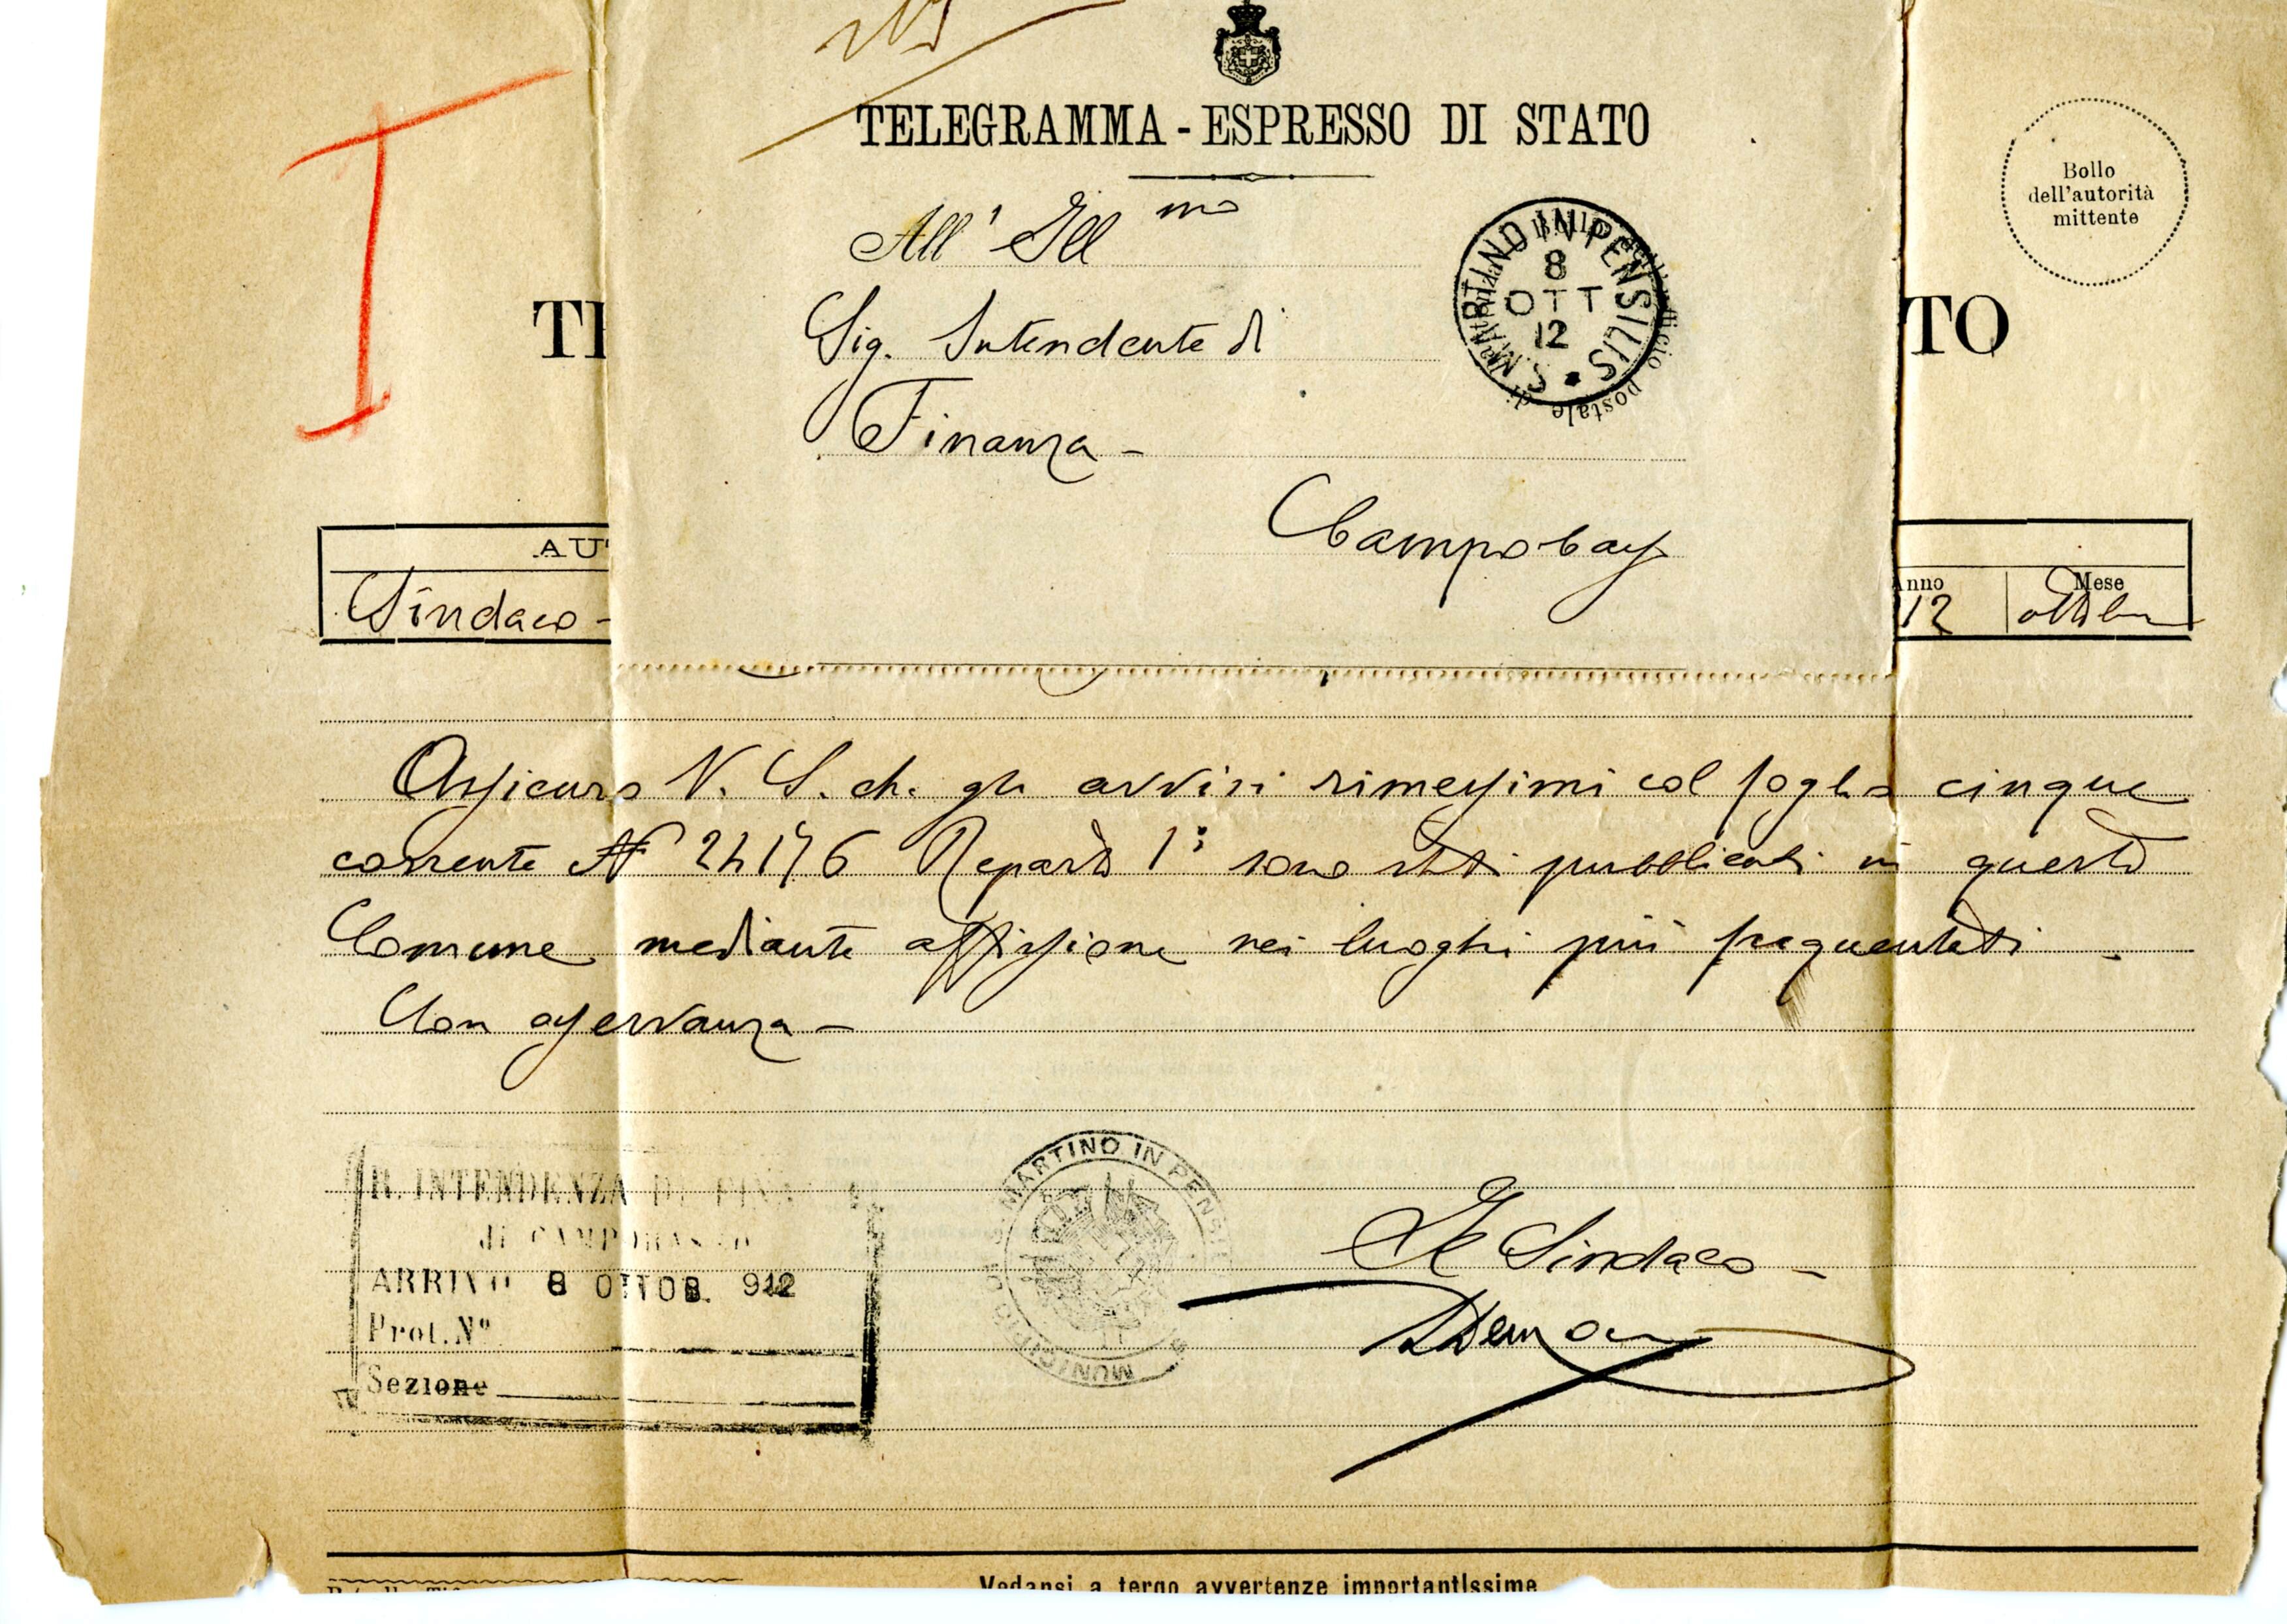 TELEGRAMMA - ESPRESSO DI STATO
All' Ill mo
Sig. Intendente di
Finanza -
S. MARTINO IN PENSILIS
8
OTT
12
Bollo
dell'autorità
mittente
TO
AU
Sindaco -
nno
12
Mese
ottobre
Assicuro V. S. che gli avvisi rimessimi col foglio cinque
corrente N° 24176 Reparto 1° sono stati pubblicati in questo
Comune mediante affissione nei luoghi più frequentati -
Con osservanza -
R. INTENDENZA DI FINA
di CAMPOBASSO
ARRIVO 8 OTTOB. 912
Prot. N°
Sezione
MUNICIPIO DI S. MARTINO IN PENSILIS
Il Sindaco -
Vedansi a tergo avvertenze importantissime